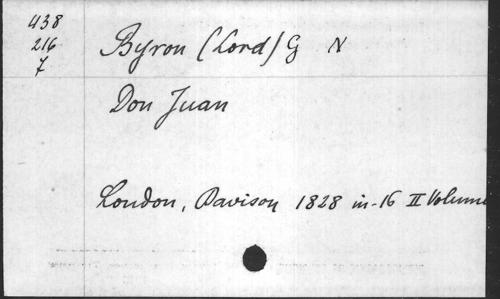 438
216
7
Byron (Lord) G N
Don Juan
London, Davison 1828 in-16 II Volume